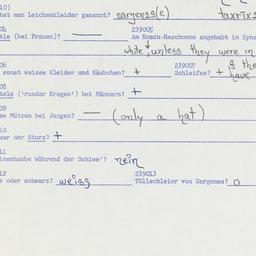 10)
hat man Leichenkleider genannt? sargenes(e) taxrixi
04 239005
kle (bei Frauen)? — Am Rosch-Haschoono angehabt in Syna
white, unless they were in
06 239007 of the
sonst weisse Kleider und Häubchen? + Schleifen? + have
08
tels ('runder Kragen') bei Männern? +
09
se Mützen bei Jungen? — (only a hat)
10
war der Sturz? +
11
inenhaube während der Schiwe'? nein
12 239013
s oder schwarz? weiss Tüllschleier von Sargenes? o